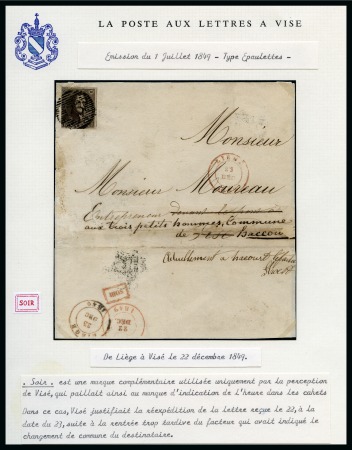 LA POSTE AUX LETTRES A VISE
Emission du 1 Juillet 1849 - Type Epaulettes -
Monsieur
LIEGE
22
DEC
Monsieur Moureau
Entrepreneur
aux trois petits hommes, Commune
de Baccou
actuellement à haccourt
SOIR
SOIR
VISÉ
22
DEC
De Liège à Visé le 22 décembre 1849.
. Soir . est une marque complémentaire utilisée uniquement par la perception
de Visé, qui palliait ainsi au manque d'indication de l'heure dans les cachets
Dans ce cas, Visé justifiait la réexpédition de la lettre reçue le 22, à la
date du 23, suite à la rentrée trop tardive du facteur qui avait indiqué le
changement de commune du destinataire.